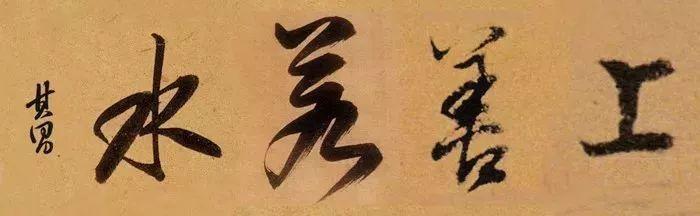 上善若水
其昌